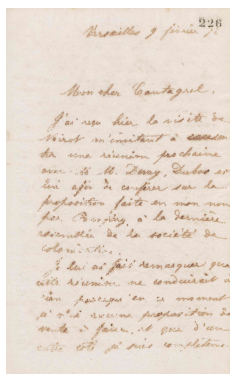 226
Versailles 9 février 7
Mon cher Cantagrel,
J'ai reçu hier la visite de
m'invitant à
une réunion prochaine
avec M. Demy, Dubos et
lui afin de conférer sur la
proposition faite en mon nom
par à la dernière
assemblée de la société de
Je lui ai fait remarquer que
cette réunion ne conduirait à
rien en ce moment
je n'ai aucune proposition de
à faire, et que d'un
autre côté je suis complètem